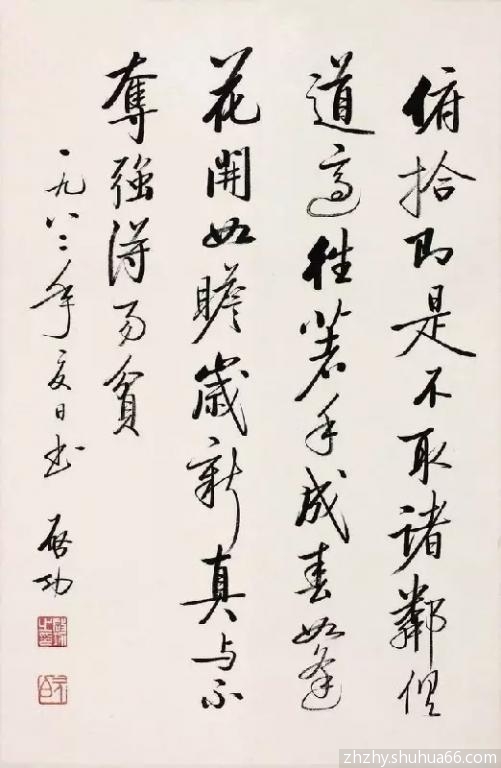 俯拾即是不取諸鄰俱
道適往著手成春如逢
花開如瞻歲新真与不
奪強得易貧
一九八二年夏日书 启功
zhzhy.shuhua66.com